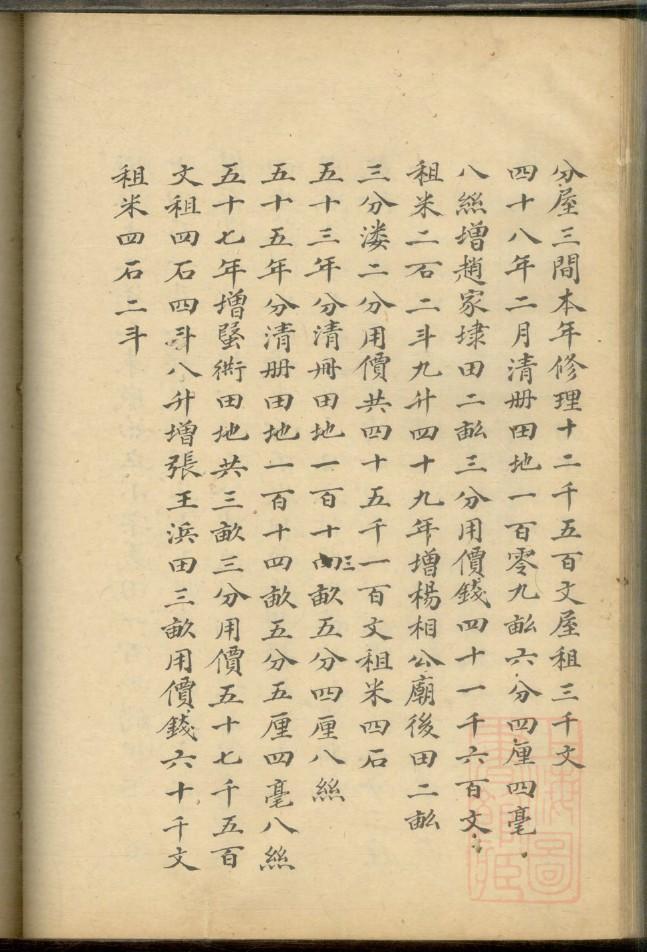 分屋三間本年修理十二千五百文屋租三千文
四十八年二月清册田地一百零九畝六分四厘四毫
八絲增趙家埭田二畝三分用價錢四十一千六百文
租米二石二斗九升四十九年增楊相公廟後田二畝
三分溇二分用價共四十五千一百文租米四石
五十三年分清册田地一百十三畝五分四厘八絲
五十五年分清册田地一百十四畝五分五厘四毫八絲
五十七年增䀋衖田地共三畝三分用價五十七千五百
文租四石四斗八升增張王浜田三畝用價錢六十千文
租米四石二斗
上海圖書館藏